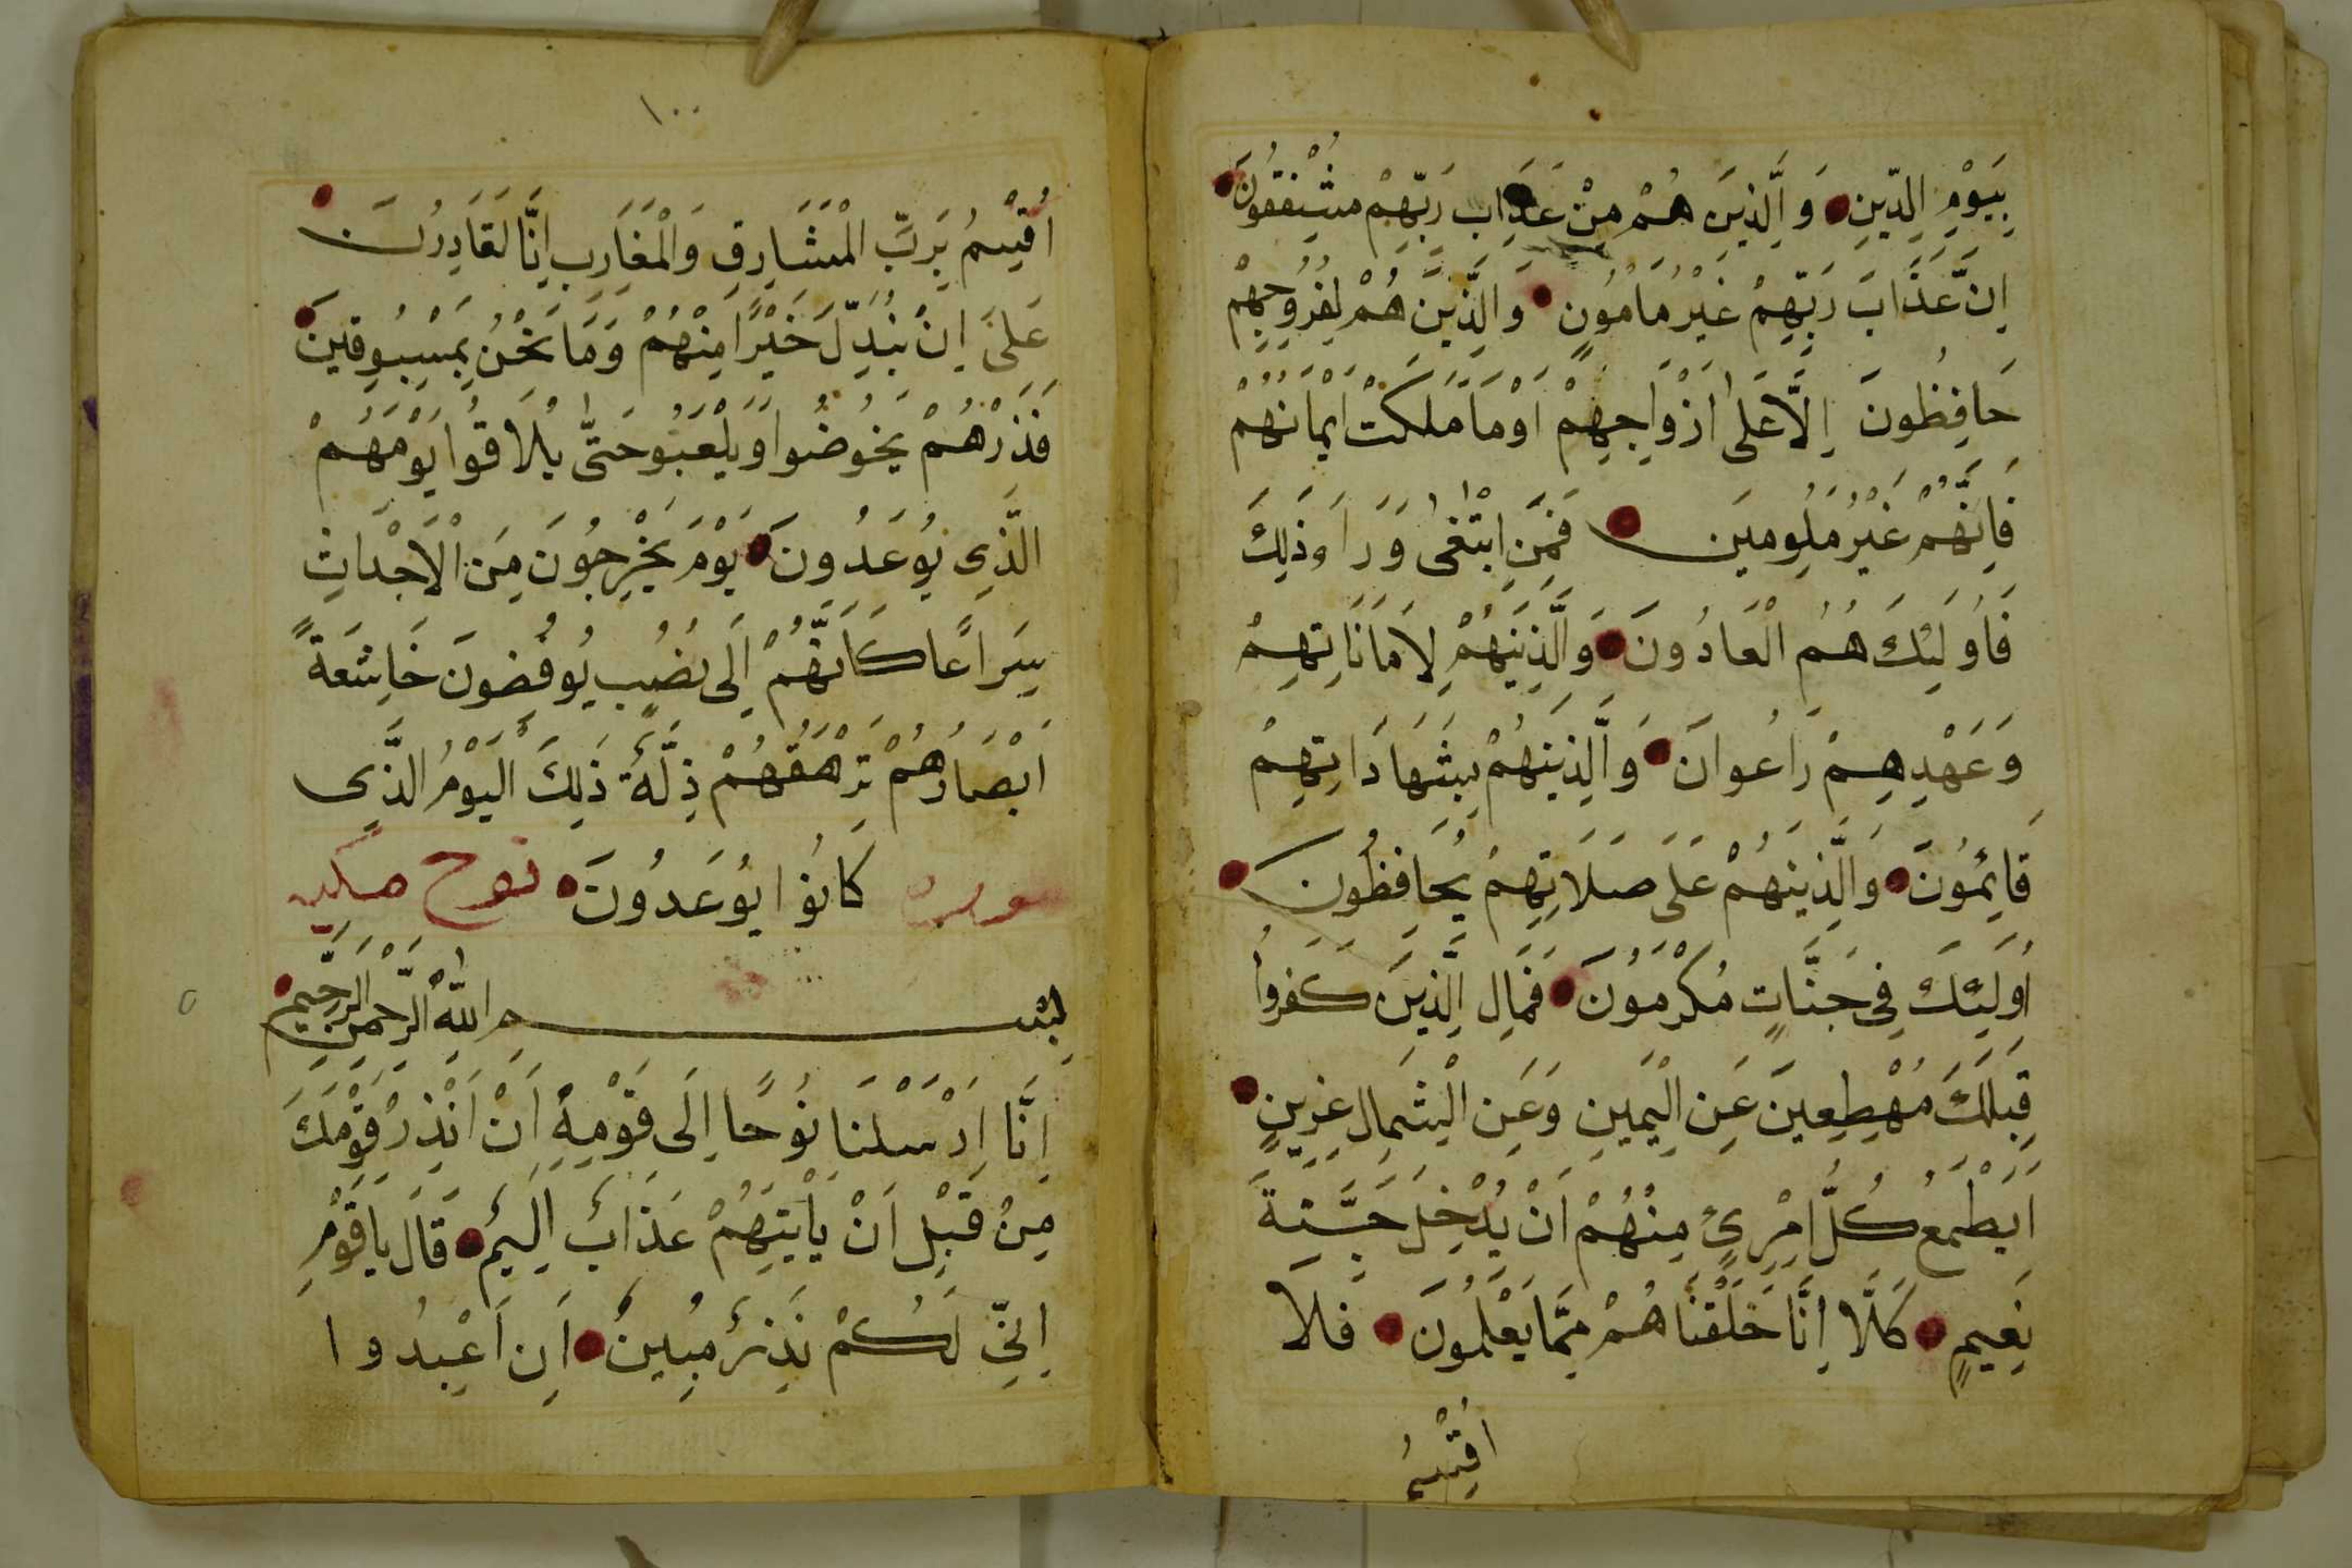 بِيَوْمِ الدِّينِ وَالَّذِينَ هُمْ مِنْ عَذَابِ رَبِّهِمْ مُشْفِقُونَ
اِنَّ عَذَابَ رَبِّهِمْ غَيْرُ مَامُونٍ وَالَّذِينَ هُمْ لِفُرُوجِهِمْ
حَافِظُونَ اِلَّا عَلٰى اَزْوَاجِهِمْ اَوْ مَا مَلَكَتْ اَيْمَانُهُمْ
فَاِنَّهُمْ غَيْرُ مَلُومِينَ فَمَنِ ابْتَغٰى وَرَاءَ ذٰلِكَ
فَاُولَئِكَ هُمُ الْعَادُونَ وَالَّذِينَهُمْ لِاَمَانَاتِهِمْ
وَعَهْدِهِمْ رَاعُوانَ وَالَّذِينَهُمْ بِشَهَادَاتِهِمْ
قَائِمُونَ وَالَّذِينَهُمْ عَلَى صَلَاتِهِمْ يُحَافِظُونَ
اُولَئِكَ فِي جَنَّاتٍ مُكْرَمُونَ فَمَالِ الَّذِينَ كَفَرُوا
قِبَلَكَ مُهْطِعِينَ عَنِ الْيَمِينِ وَعَنِ الْشِمَالِ عِزِينٍ
اَيَطْمَعُ كُلُّ امْرِئٍ مِنْهُمْ اَنْ يُدْخَلَ جَنَّةَ
نَعِيمٍ كَلَّا اِنَّا خَلَقْنَاهُمْ مِمَّا يَعْلَمُونَ فَلَا
اُقْسِمُ
١٠٠
اُقْسِمُ بِرَبِّ الْمَشَارِقِ وَالْمَغَارِبِ اِنَّا لَقَادِرُنَ
عَلىَ اِنْ نُبَدِّلَ خَيْرًا مِنْهُمْ وَمَا نَحْنُ بِمَسْبُوقِينَ
فَذَرْهُمْ يَخُوضُوا وَيَلْعَبُو حَتّٰى يُلَاقُوا يَوْمَهُمْ
الَّذِي يُوعَدُونَ يَوْمَ يَخْرِجُونَ مِنَ الْاَجْدَاثِ
سِرَاعًا كَاَنَّهُمْ اِلَى نُصُبٍ يُوفِضُونَ خَاشِعَةً
اَبْصَارُهُمْ تَرْهَقُهُمْ ذِلَّةٌ ذٰلِكَ الْيَوْمُ الَّذِي
كَانُوا يُوعَدُونَ
سوره نوح مكيه
بِسْمِ اللّٰهِ الرَّحْمٰنِ الرَّحِيمِ
اِنَّا اَرْسَلْنَا نُوحًا اِلَى قَوْمِهِ اَنْ اَنْذِرْ قَوْمَكَ
مِنْ قَبْلِ اَنْ يَاْتِيَهُمْ عَذَابٌ اَلِيمٌ قَالَ يَا قَوْمِ
اِنِّي لَكُمْ نَذِيرٌ مُبِينٌ اَنِ اَعْبُدُوا